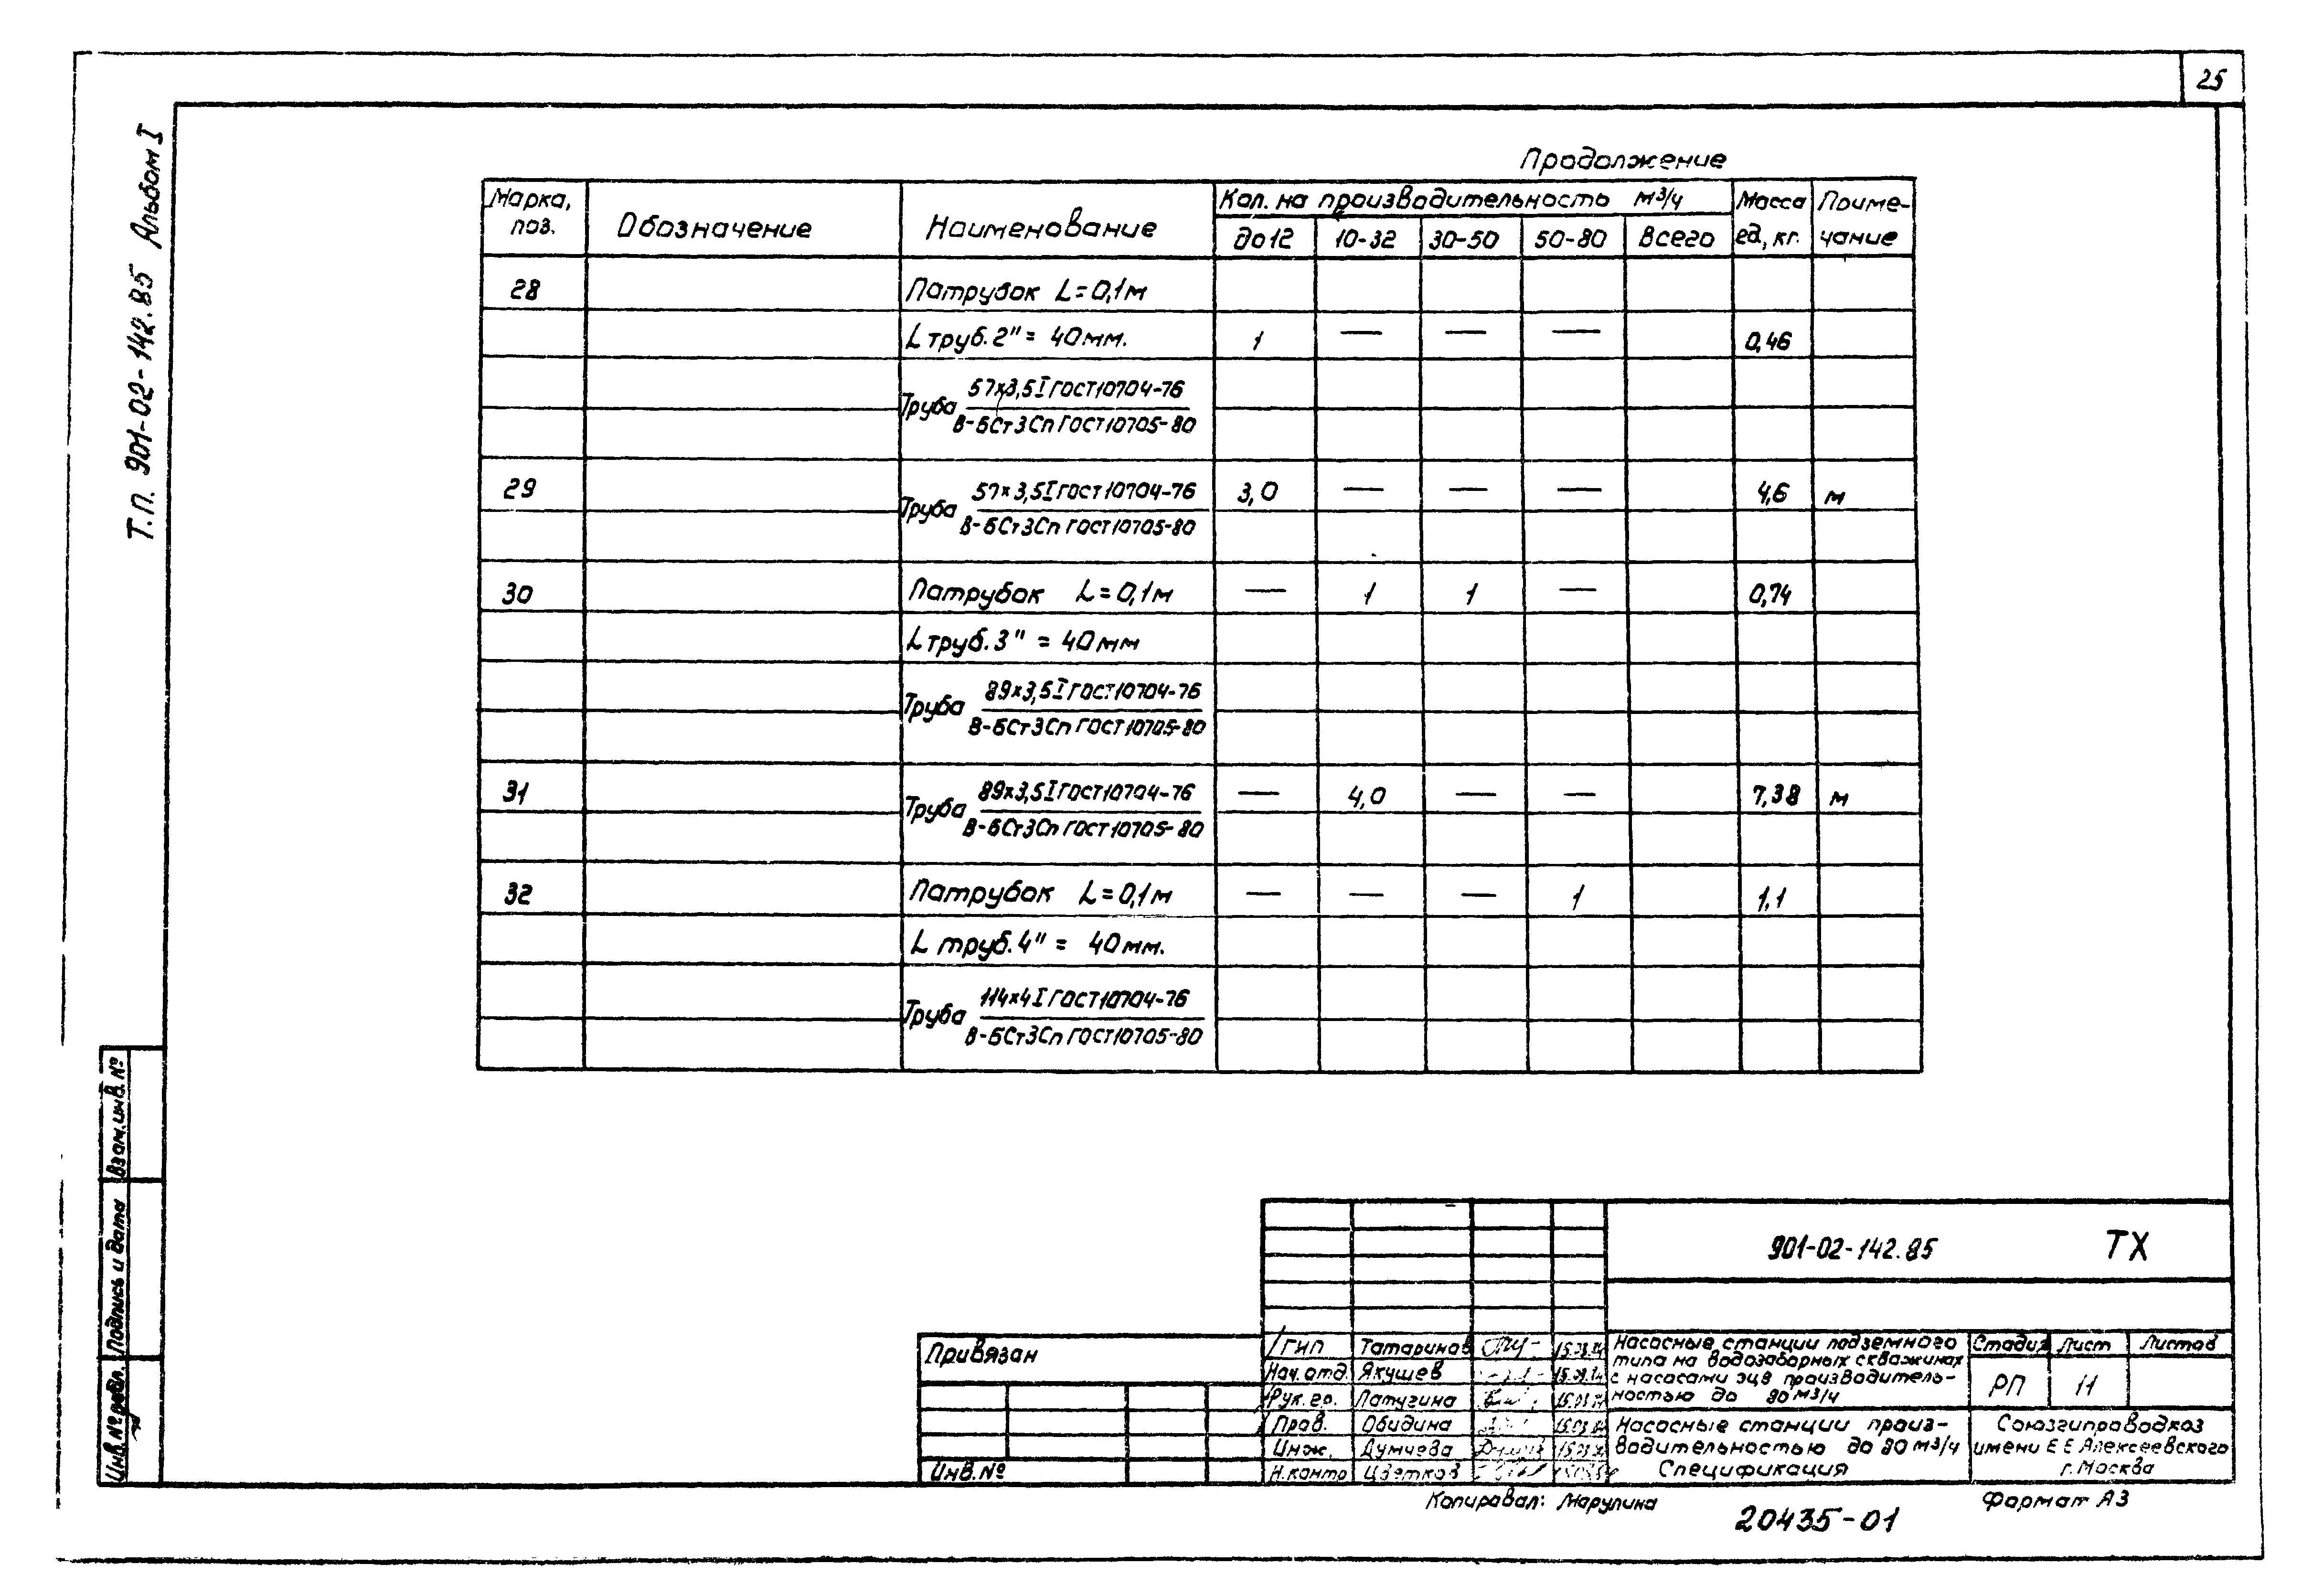 25
Т.П. 901-02-142.85 Альбом I
Продолжение
Марка, поз. Обозначение Наименование Кол. на производительность м³/ч Масса ед, кг. Приме-чание
до 12 10-32 30-50 50-80 Всего
28 Патрубок L=0,1м
L труб. 2" = 40мм. 1 — — — 0,46
Труба 57х3,5 I ГОСТ 10704-76
В-БСт3Сп ГОСТ 10705-80
29 Труба 57х3,5 I ГОСТ 10704-76 3,0 — — — 4,6 м
В-БСт3Сп ГОСТ 10705-80
30 Патрубок L=0,1м — 1 1 — 0,74
L труб. 3" = 40мм
Труба 89х3,5 I ГОСТ 10704-76
В-БСт3Сп ГОСТ 10705-80
31 Труба 89х3,5 I ГОСТ 10704-76 — 4,0 — — 7,38 м
В-БСт3Сп ГОСТ 10705-80
32 Патрубок L=0,1м — — — 1 1,1
L труб. 4" = 40мм.
Труба 114х4 I ГОСТ 10704-76
В-БСт3Сп ГОСТ 10705-80
Взам. инв. №
Подпись и дата
Инв. № подл.
901-02-142.85 ТХ
Привязан
Инв. №
ГИП Татаринов
Нач. отд. Якушев
Рук. гр. Латугина
Пров. Обидина
Инж. Думчева
Н.контр Цветков
Насосные станции подземного
типа на водозаборных скважинах
с насосами эцв производитель-
ностью до 80 м³/ч
Стадия Лист Листов
РП 11
Насосные станции произ-
водительностью до 80 м³/ч
Спецификация
Союзгипроводхоз
имени Е Е Алексеевского
г. Москва
Копировал: Марулина
20435-01
Формат А3